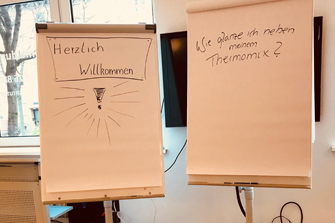 Herzlich
Willkommen
!
Wie glänze ich neben
meinem
Thermomix?